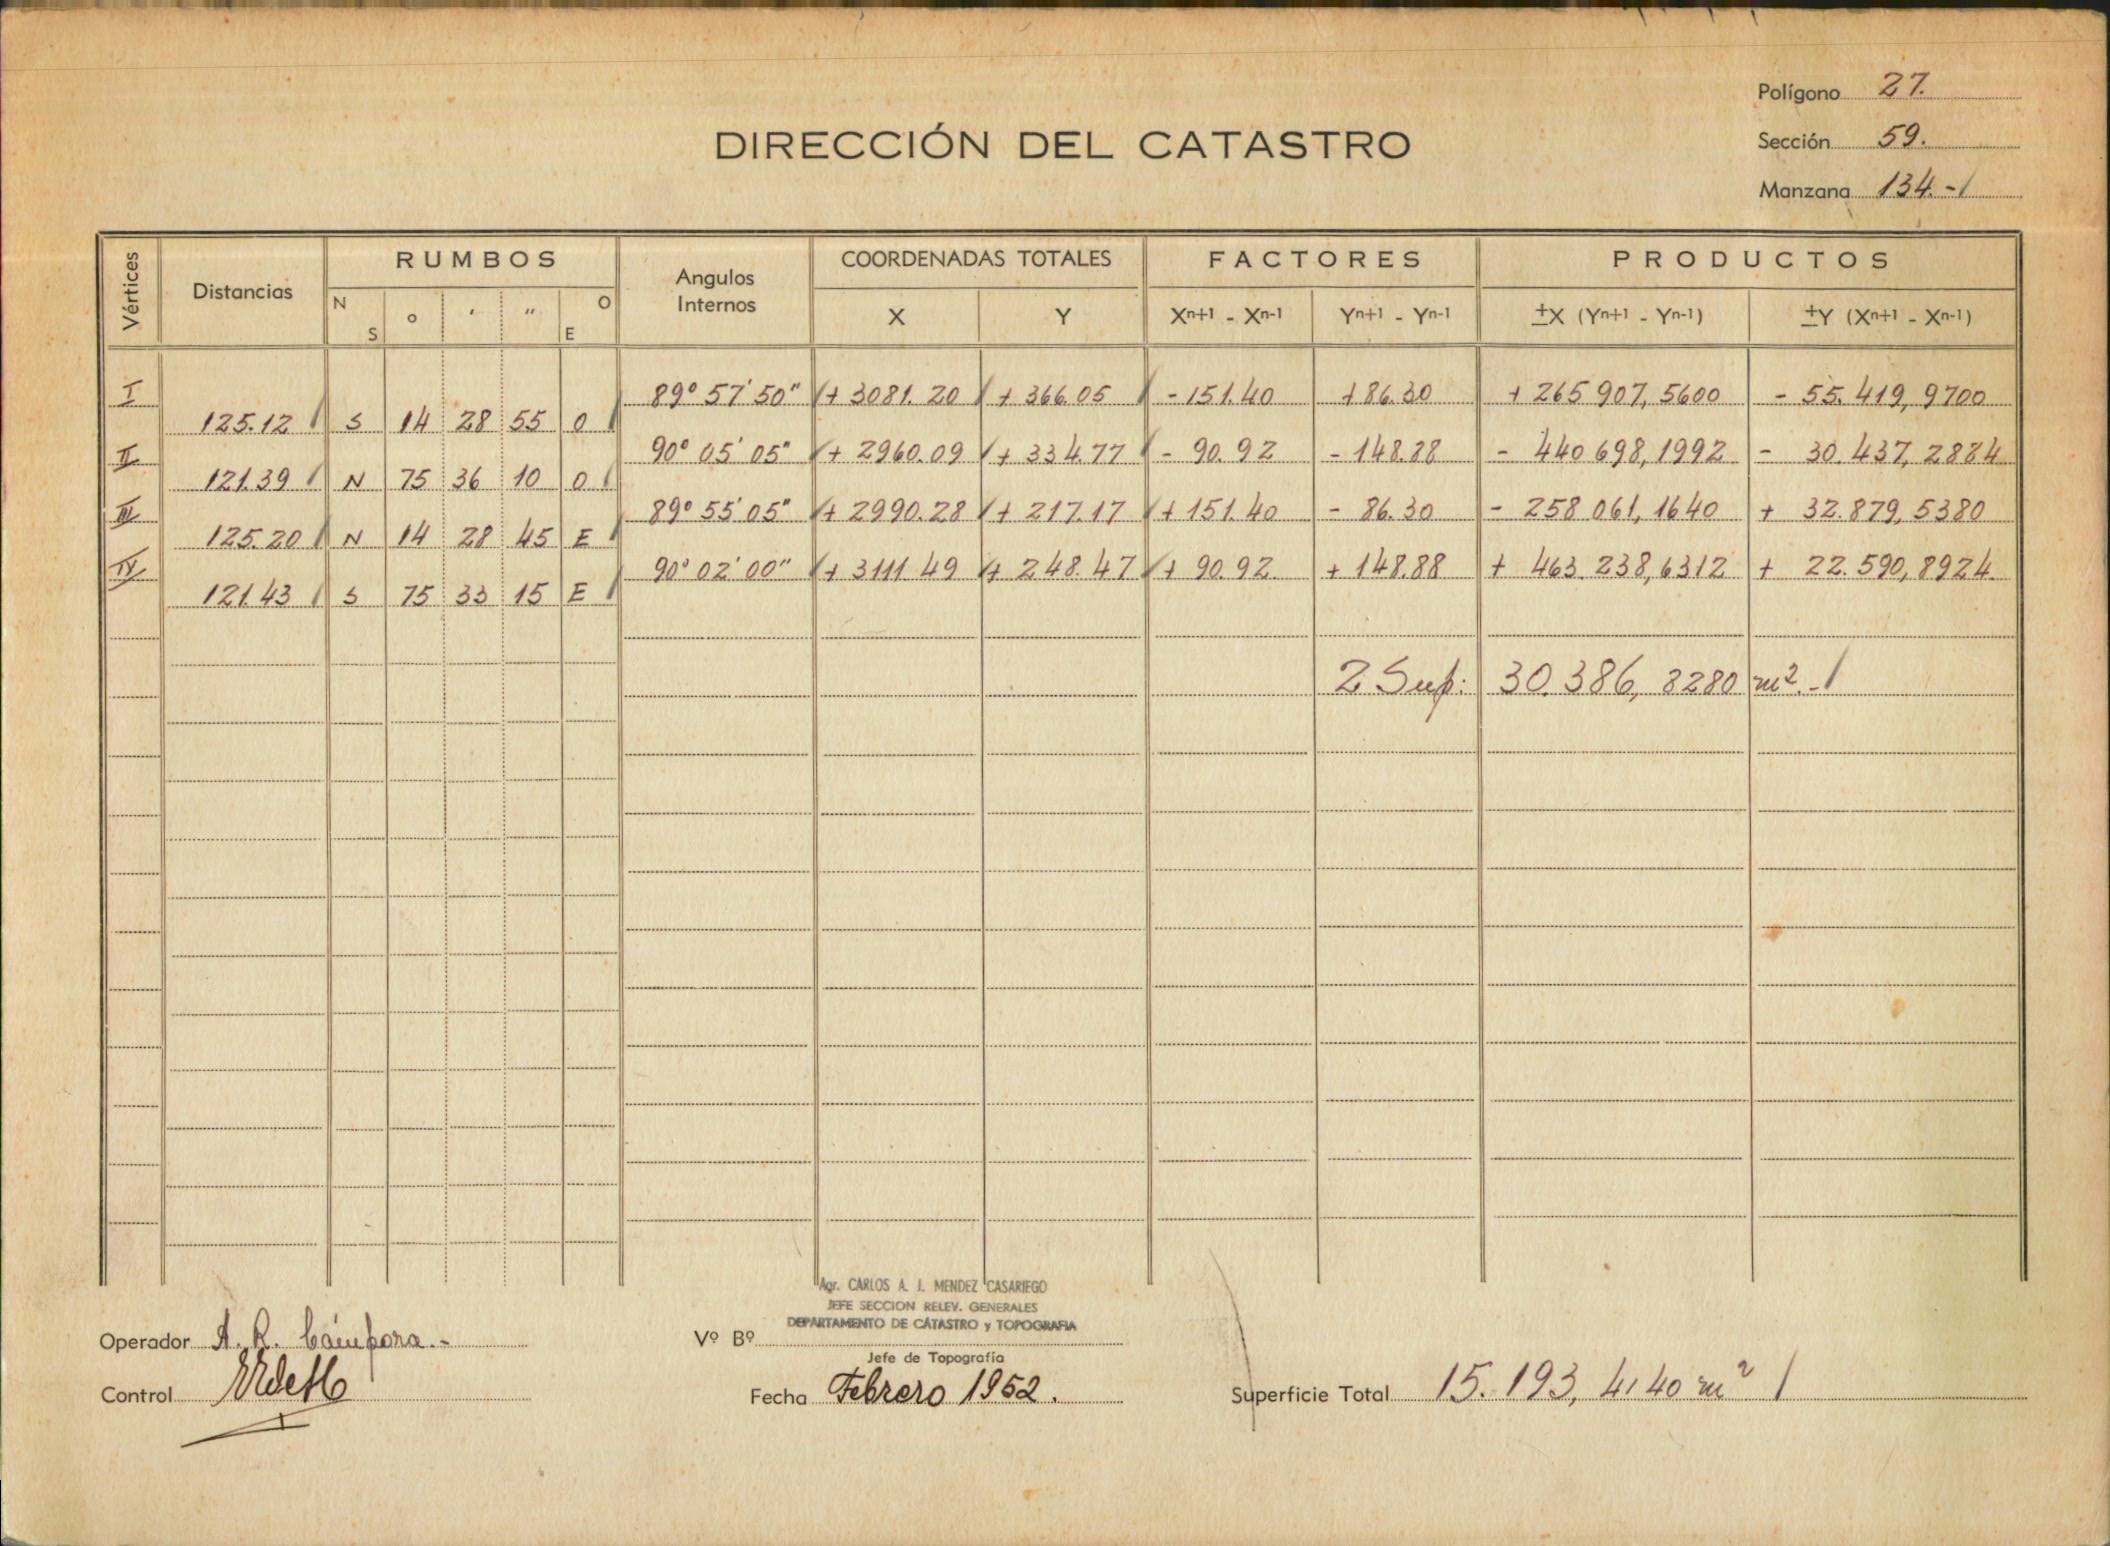 Polígono 27.
DIRECCIÓN DEL CATASTRO
Sección 59.
Manzana 134.-/
Vértices Distancias RUMBOS Angulos Internos COORDENADAS TOTALES FACTORES PRODUCTOS
N S ° ′ ″ O E X Y Xn+1 - Xn-1 Yn+1 - Yn-1 ±X (Yn+1 - Yn-1) ±Y (Xn+1 - Xn-1)
I 89° 57' 50" + 3081.20 + 366.05 - 151.40 + 86.30 + 265 907,5600 - 55.419,9700
125.12 S 14 28 55 O
II 90° 05' 05" + 2960.09 + 334.77 - 90.92 - 148.88 - 440 698,1992 - 30.437,2884
121.39 N 75 36 10 O
III 89° 55' 05" + 2990.28 + 217.17 + 151.40 - 86.30 - 258 061,1640 + 32.879,5380
125.20 N 14 28 45 E
IV 90° 02' 00" + 3111.49 + 248.47 + 90.92 + 148.88 + 463.238,6312 + 22.590,8924
121.43 S 75 33 15 E
2 Sup: 30.386,8280 m².-/
Agr. CARLOS A. J. MENDEZ CASARIEGO
JEFE SECCION RELEV. GENERALES
DEPARTAMENTO DE CATASTRO y TOPOGRAFIA
Operador A. R. Cámpora.-
Vº Bº
Jefe de Topografía
Control
Fecha Febrero 1952.
Superficie Total 15.193,4140 m² /